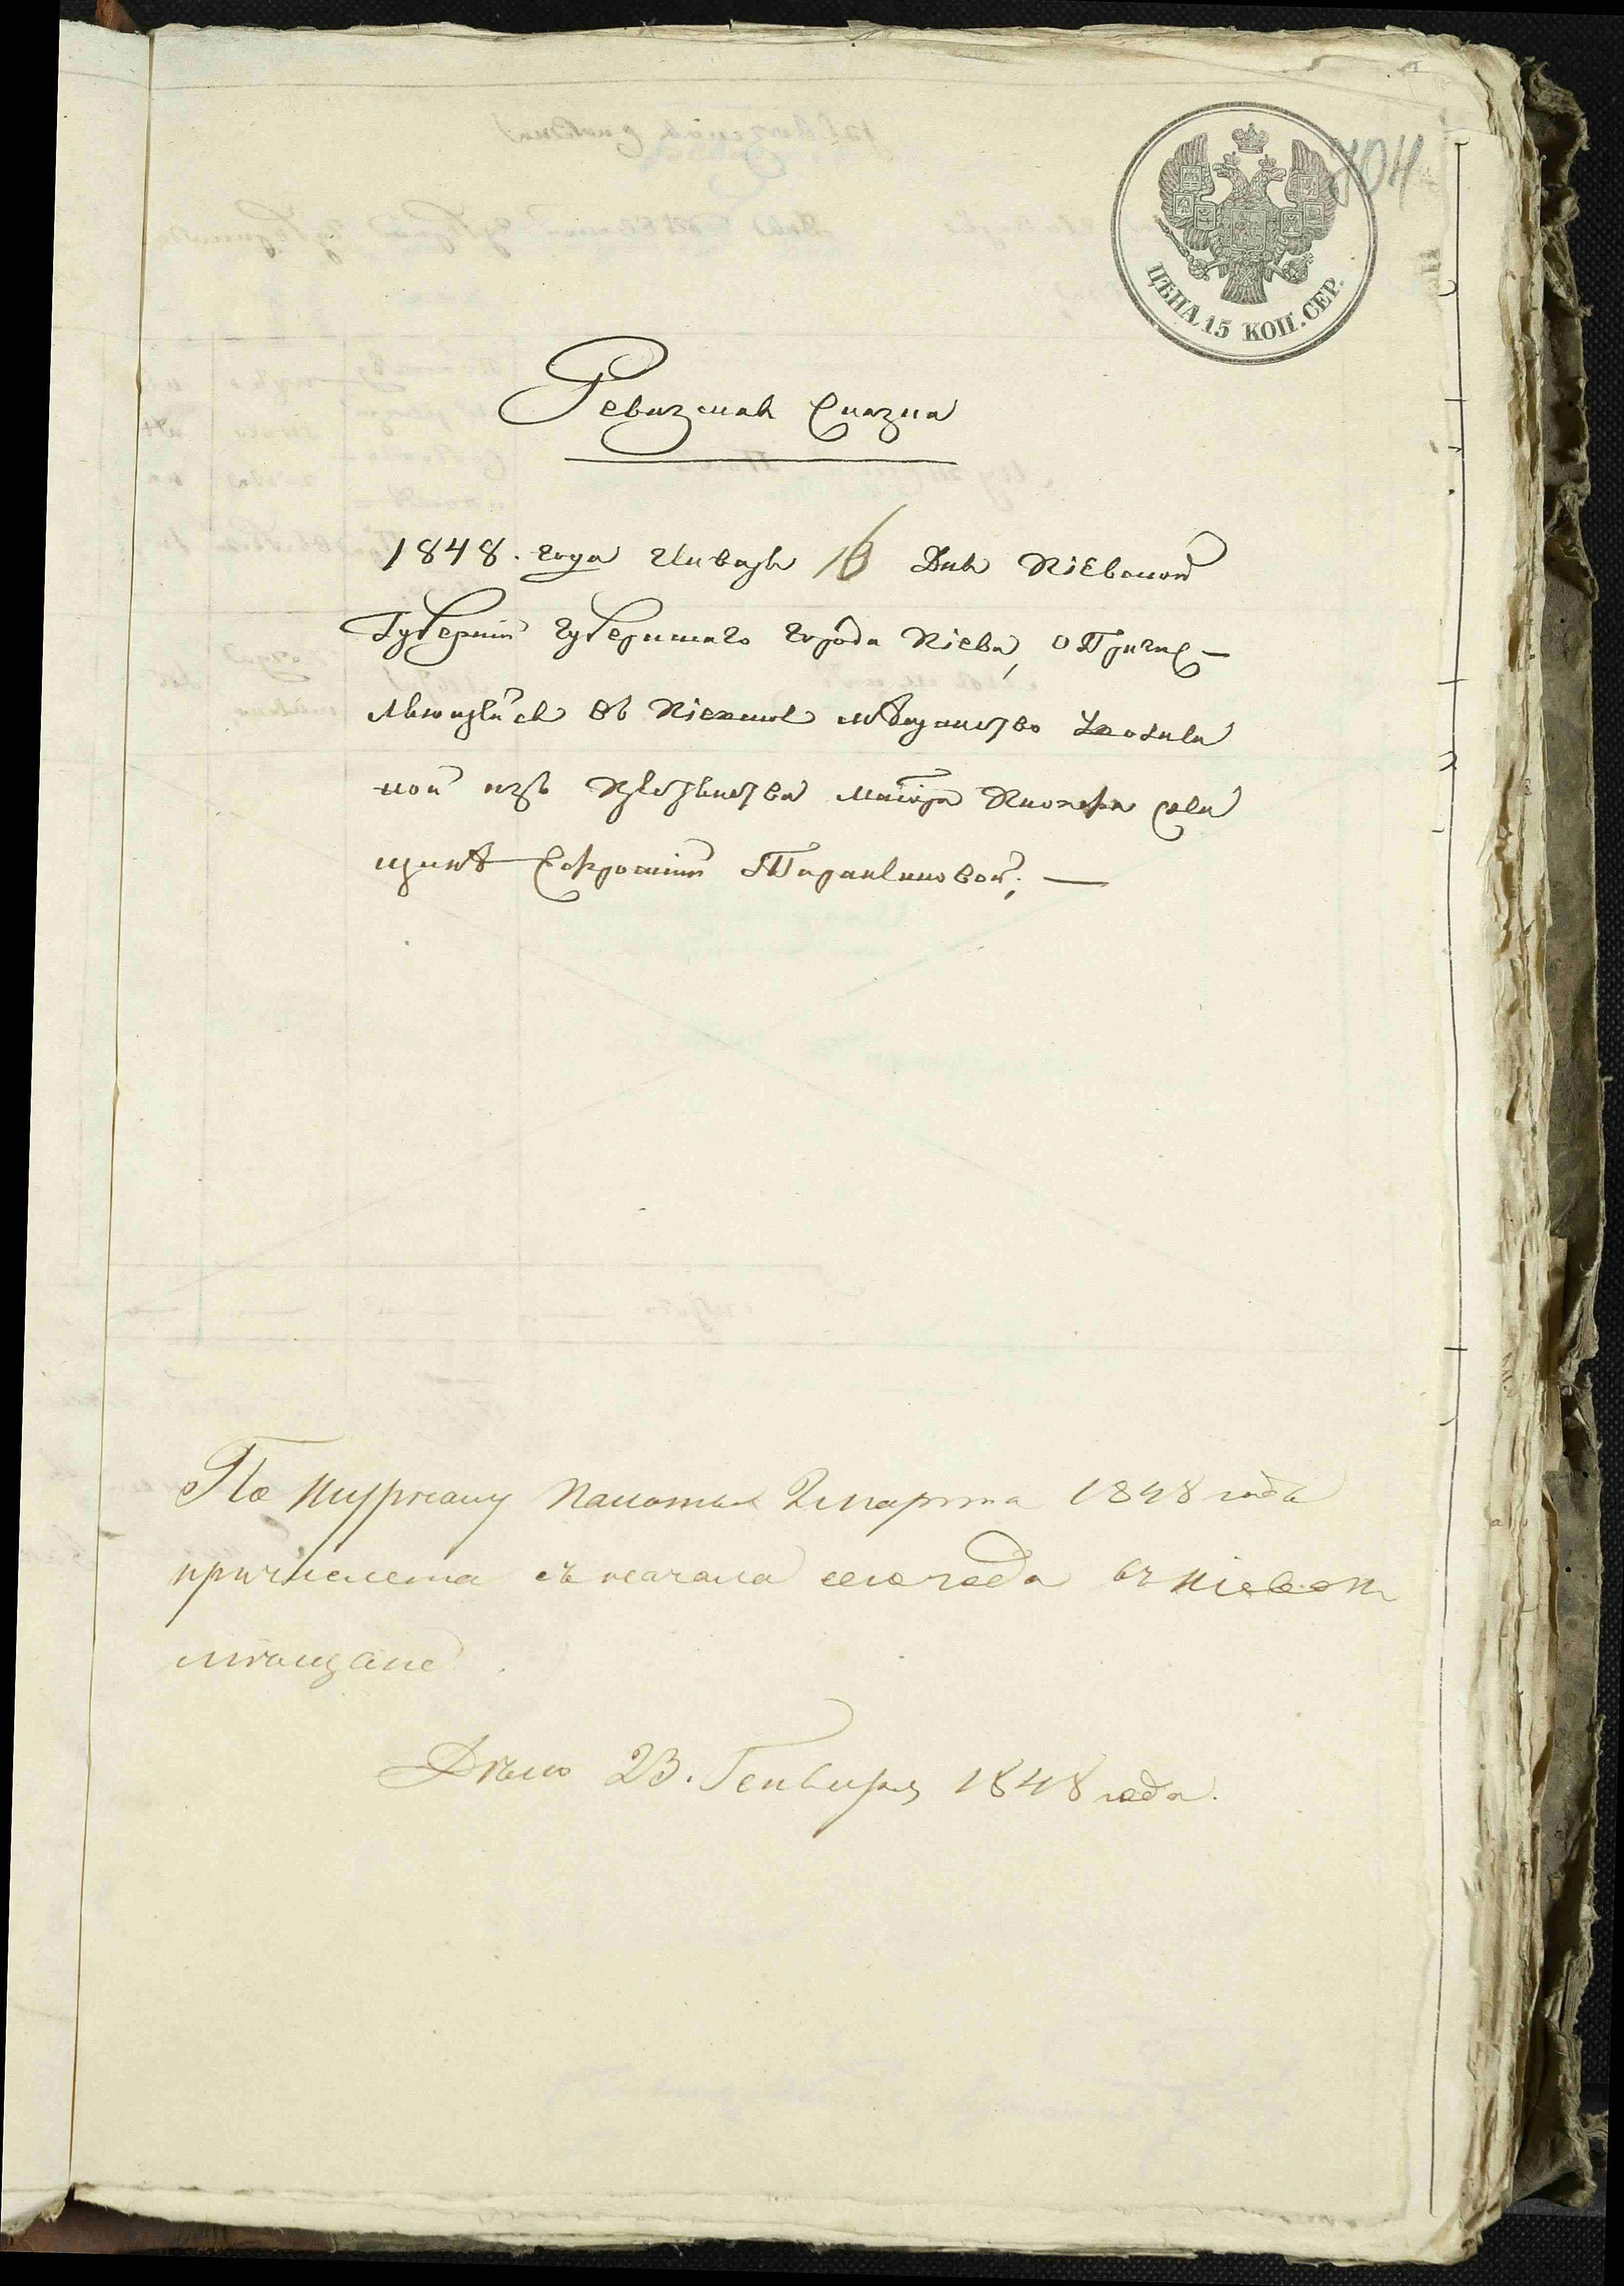 704
ЦѢНА 15 КОП. СЕР.
Ревизская Сказка
1848. года Генваря 16 Дня Кіевской
Губерніи губернскаго города Кіева, о Причис—
ляющейся въ Кіевское мѣщанство
ной изъ маіора
Ефросиніи —
По журналу Палаты 2 марта 1848 года
причислена съ начала сего года въ кіевск
мѣщане
Дѣло 23. Генваря 1848 года.